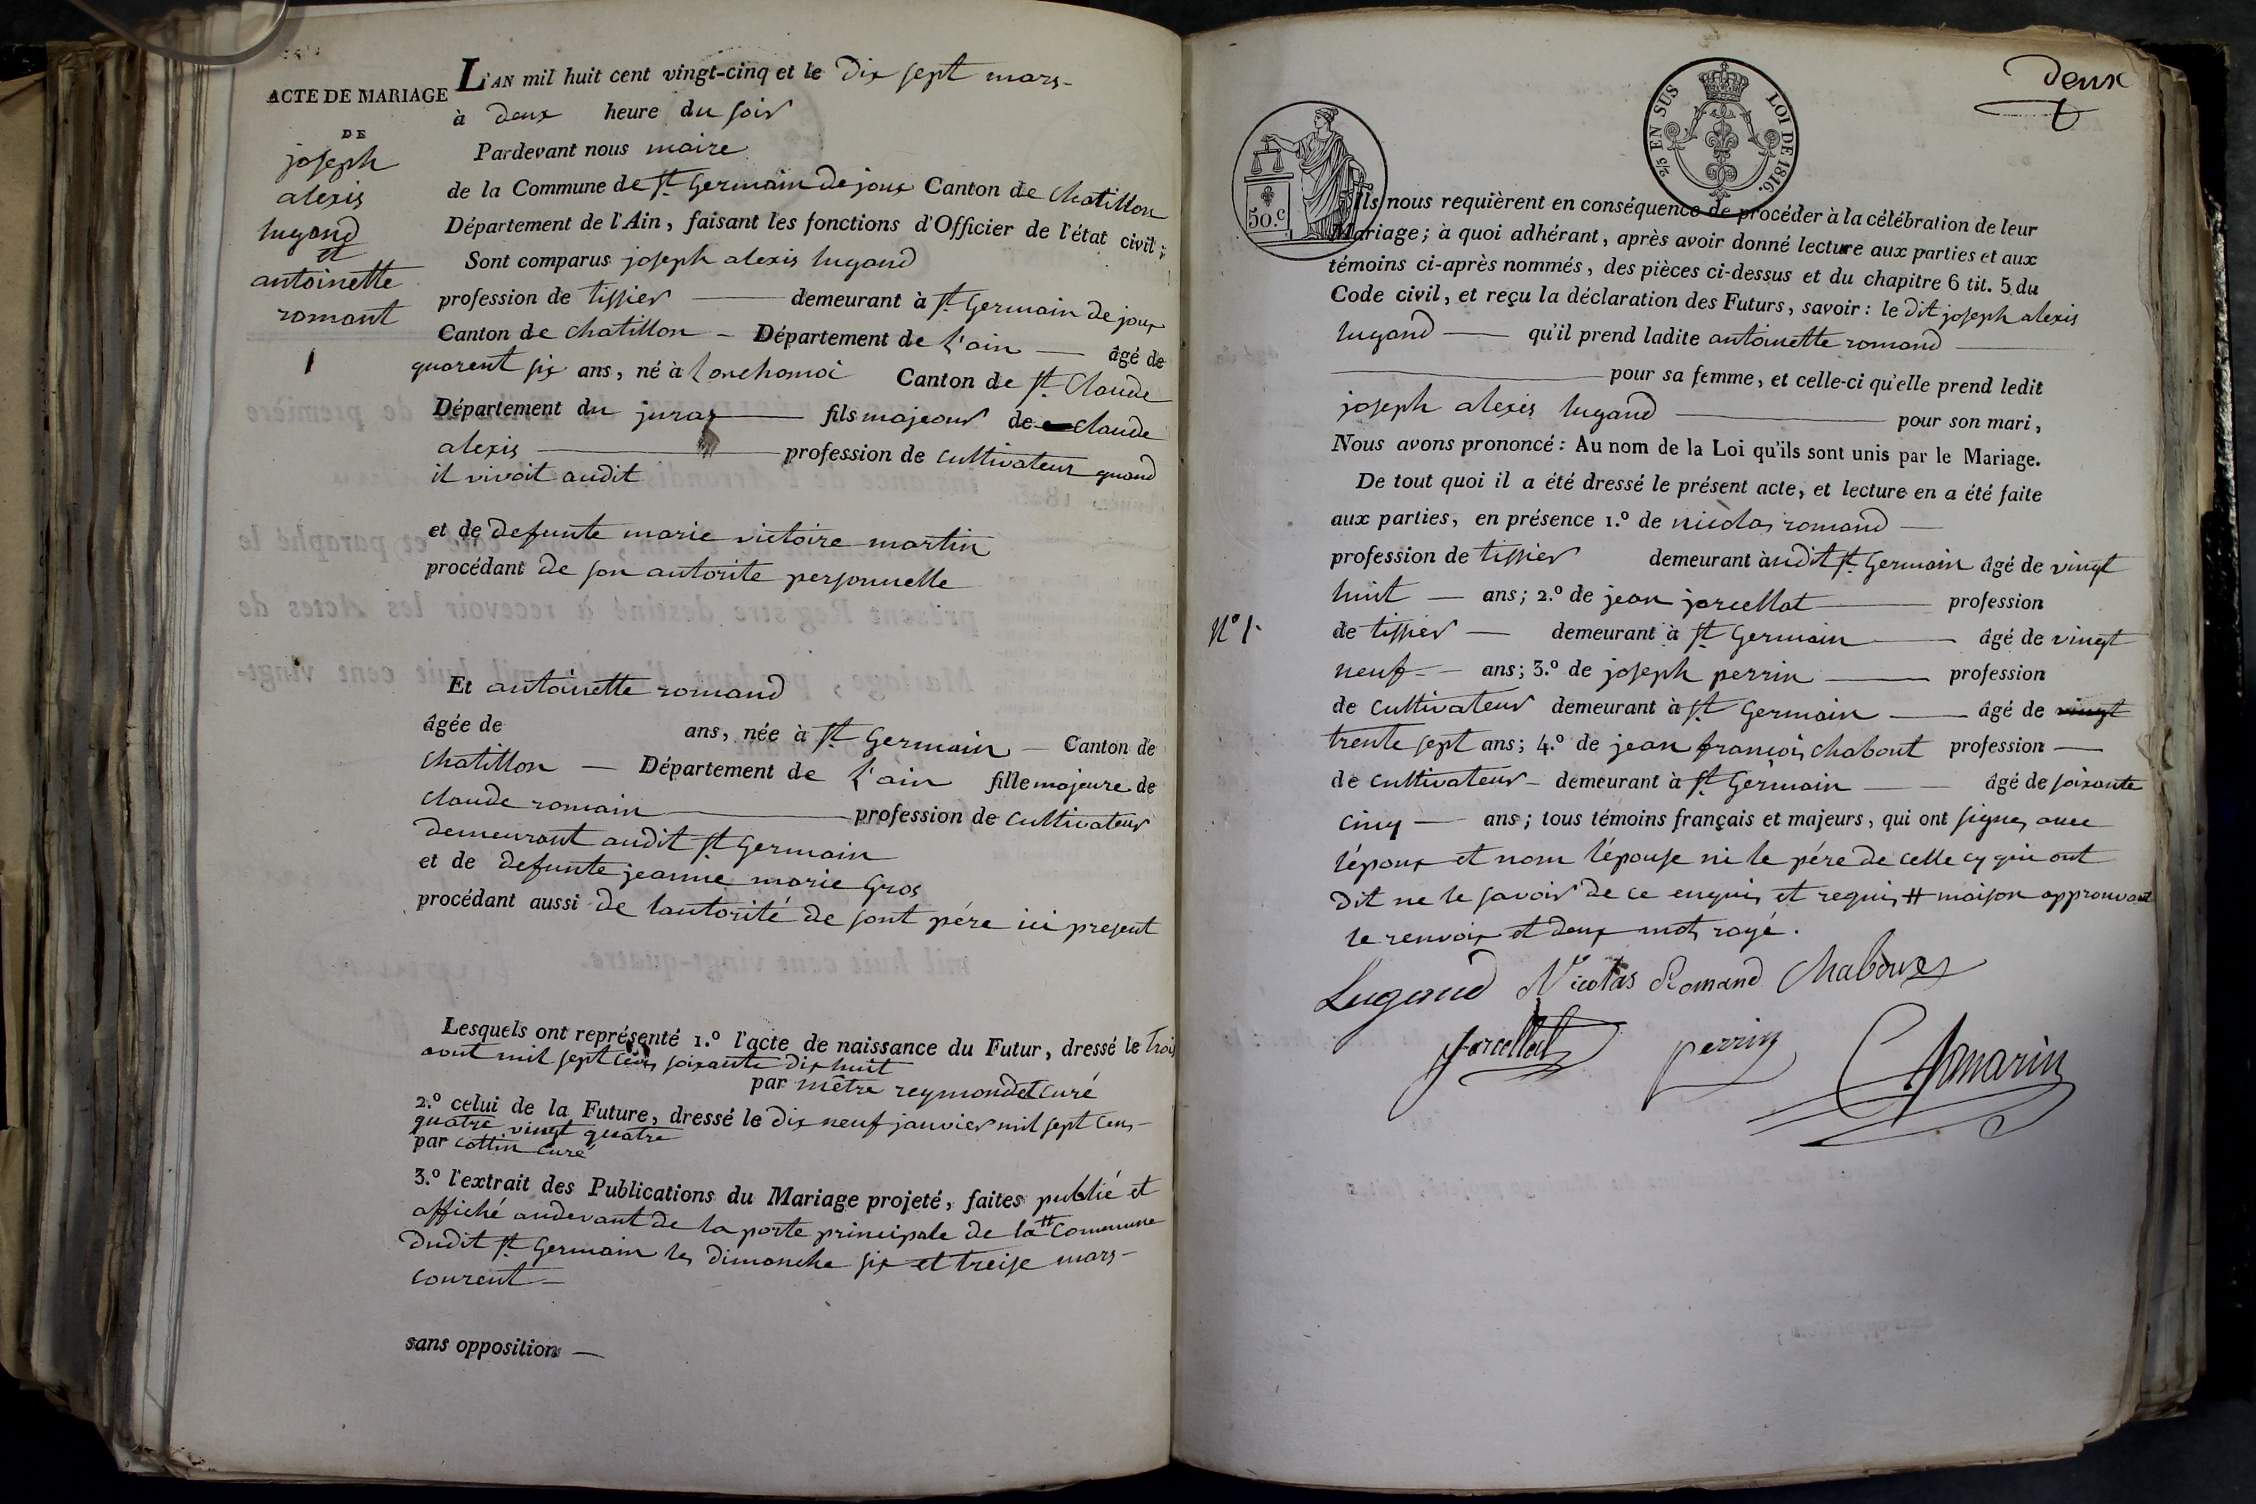 ACTE DE MARIAGE
DE
joseph
alexis
lugand
et
antoinette
romant
1
L'AN mil huit cent vingt-cinq et le dix sept mars
à deux heure du soir
Pardevant nous maire
de la Commune de St. Germain de joux Canton de chatillon
Département de l'Ain, faisant les fonctions d'Officier de l'état civil;
Sont comparus joseph alexis lugand
profession de tissier demeurant à St. Germain de joux
Canton de chatillon Département de l'ain âgé de
quarent six ans, né à Lonchomoi Canton de St. Claude
Département du juras fils majeour de claude
alexis profession de cultivateur quand
il vivoit audit
et de defunte marie victoire martin
procédant de son autorite personnelle
Et antoinette romand
âgée de ans, née à St. Germain Canton de
chatillon Département de l'ain fille majeure de
claude romain profession de cultivateur
demeurant audit St. Germain
et de defunte jeanne marie Gros
procédant aussi de lautorité de sont pére ici present
Lesquels ont représenté 1.º l'acte de naissance du Futur, dressé le trois
aout mil sept cens soixante dix huit
par mêtre reymondet curé
2.º celui de la Future, dressé le dix neuf janvier mil sept cens
quatre vingt quatre
par cottin curé
3.º l'extrait des Publications du Mariage projeté, faites publié et
affiché audevant de la porte principale de la # Commune
dudit St. Germain les dimanche six et treise mars
courent
sans opposition
deux
50.c
2/5 EN SUS LOI DE 1816.
Ils nous requièrent en conséquence de procéder à la célébration de leur
Mariage; à quoi adhérant, après avoir donné lecture aux parties et aux
témoins ci-après nommés, des pièces ci-dessus et du chapitre 6 tit. 5 du
Code civil, et reçu la déclaration des Futurs, savoir: le dit joseph alexis
lugand qu'il prend ladite antoinette romand
pour sa femme, et celle-ci qu'elle prend ledit
joseph alexis lugand pour son mari,
Nous avons prononcé: Au nom de la Loi qu'ils sont unis par le Mariage.
De tout quoi il a été dressé le présent acte, et lecture en a été faite
aux parties, en présence 1.º de nicolas romand
profession de tissier demeurant àudit St. Germain âgé de vingt
huit ans; 2.º de jean jarcellat profession
Nº 1.
de tissier demeurant à St. Germain âgé de vingt
neuf ans; 3.º de joseph perrin profession
de cultivateur demeurant à St. Germain âgé de vingt
trente sept ans; 4.º de jean françois chabout profession
de cultivateur demeurant à St. Germain âgé de soixante
cinq ans; tous témoins français et majeurs, qui ont signes avec
l'époux et nom l'épouse ni le pére de celle cy qui ont
dit ne le savoir de ce enquis et requis # maison approuvant
le renvoix et deux mots rayé.
Lugand Nicolas Romand Chaboux
jarcellat perrin